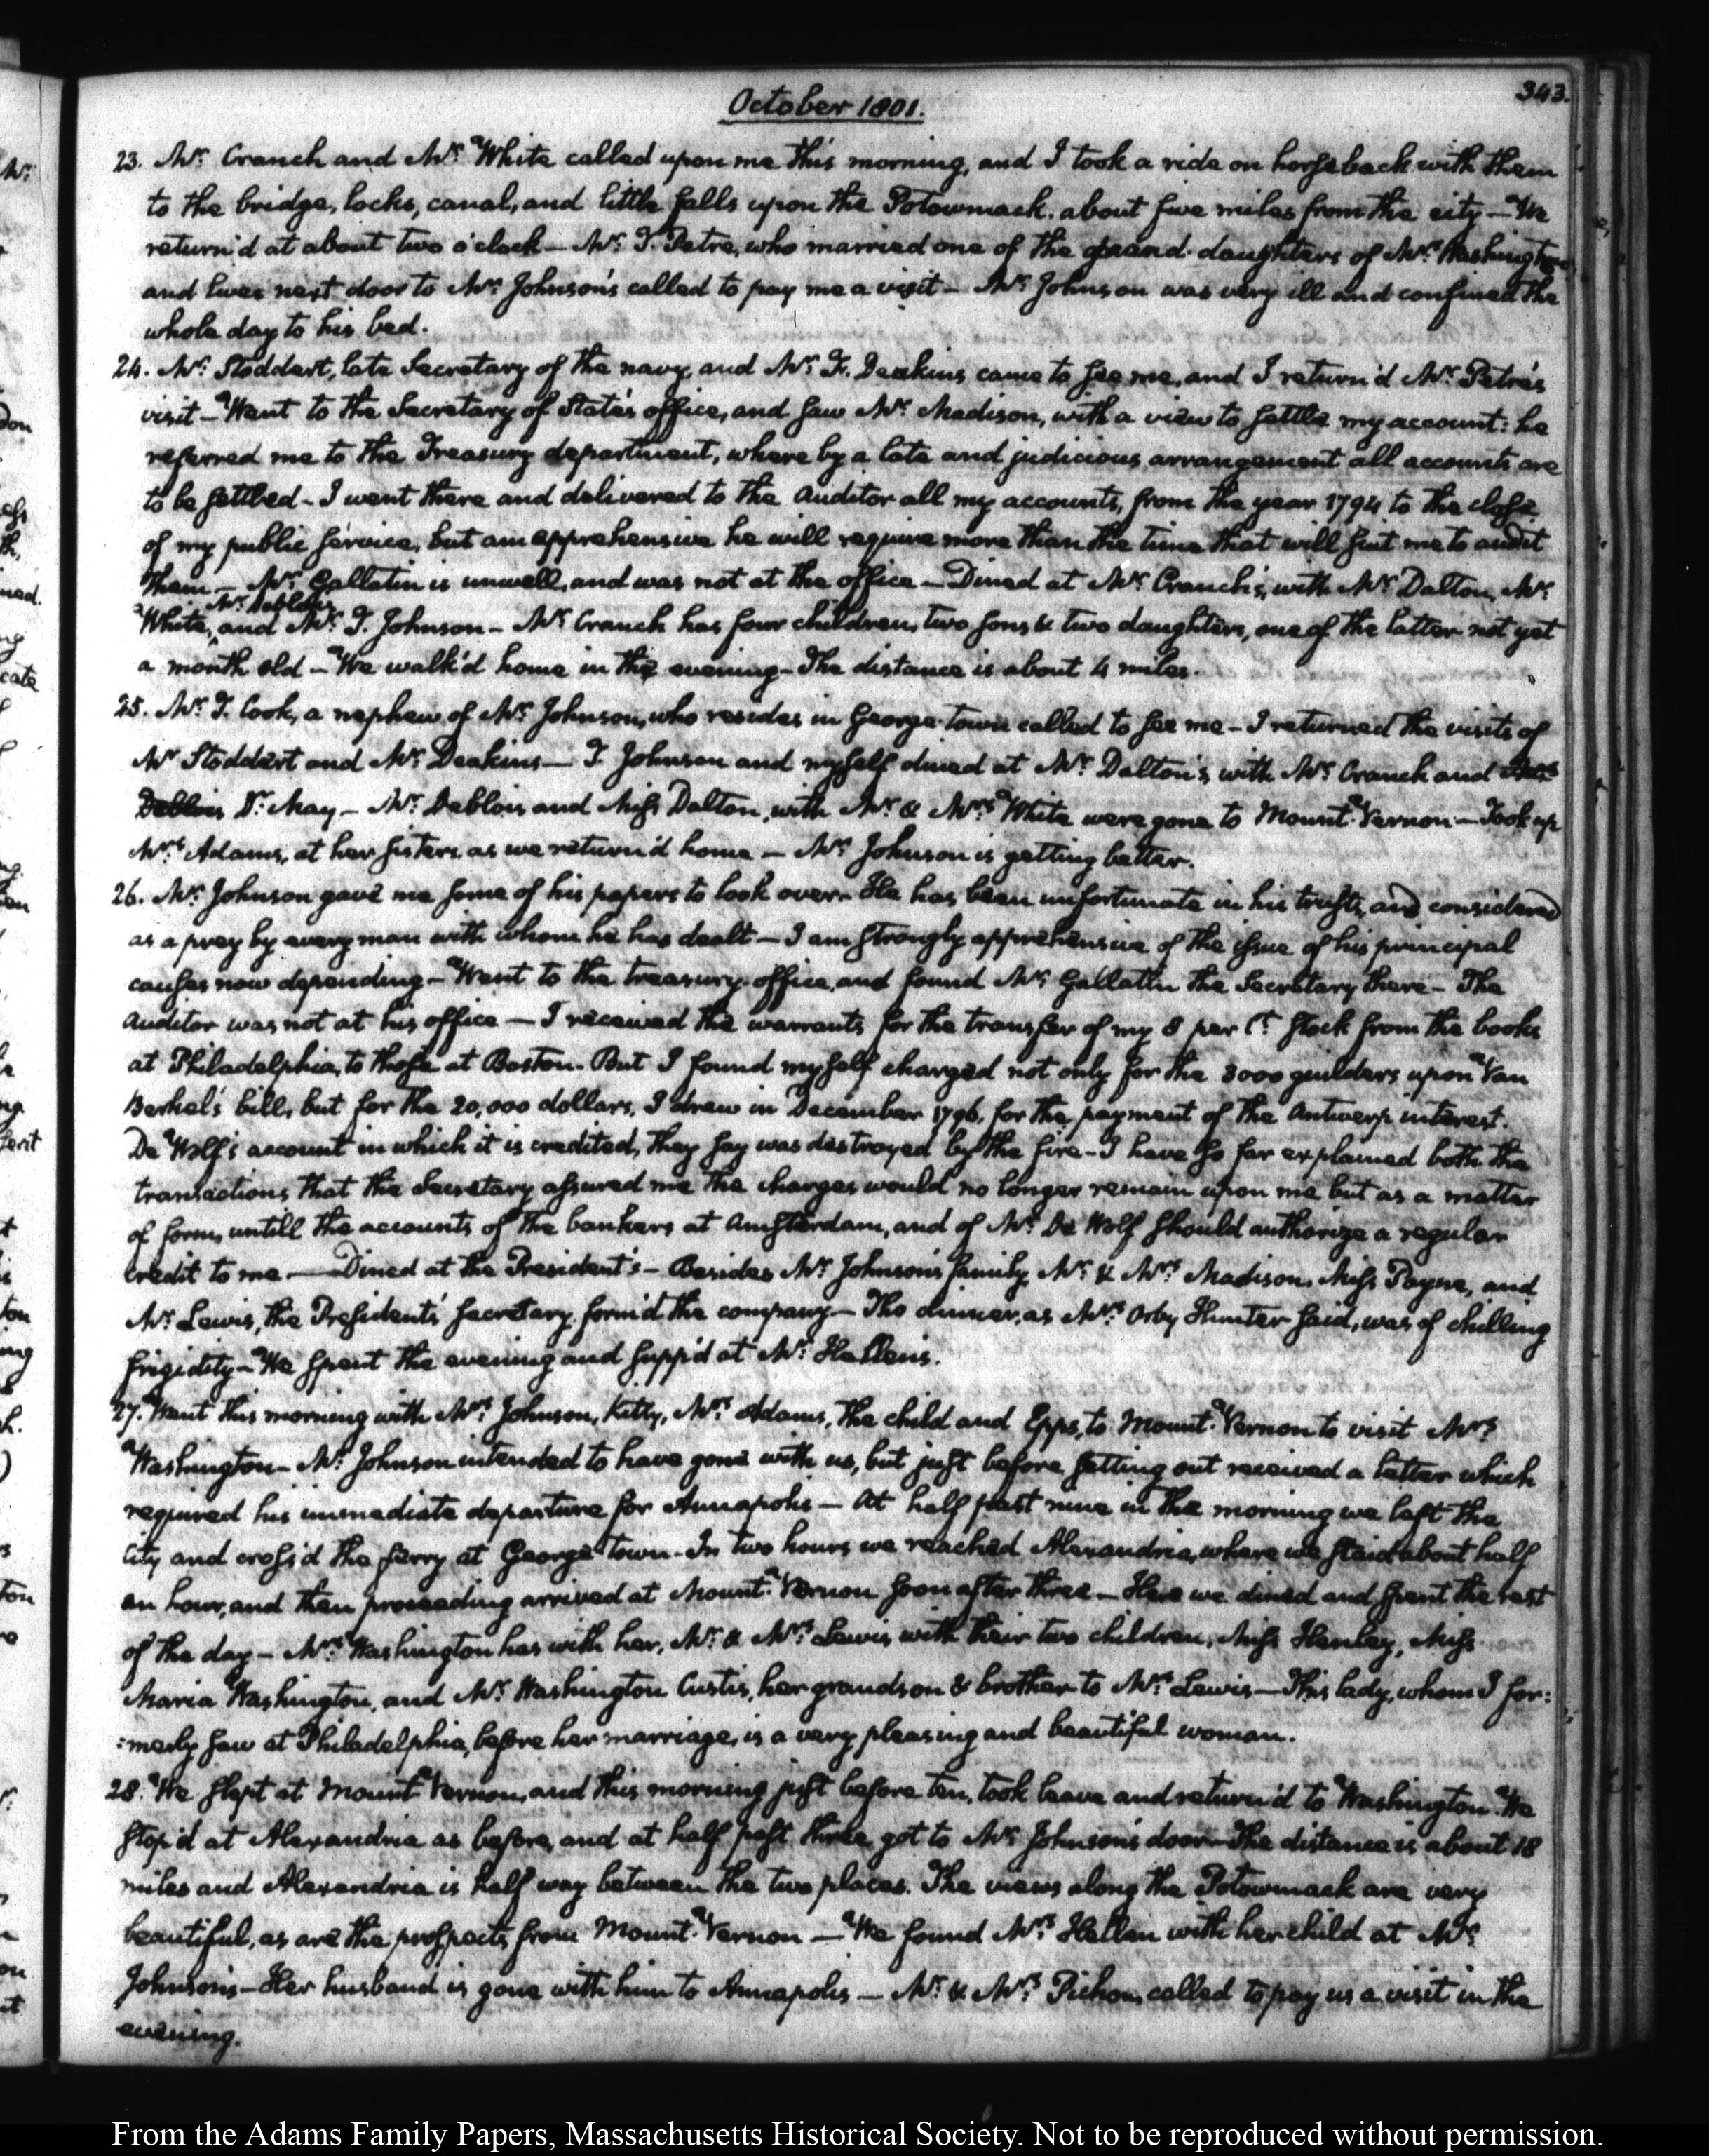 343.
October 1801.
23. Mr. Cranch and Mr. White called upon me this morning, and I took a ride on horseback with them
to the bridge, locks, canal, and little falls upon the Potowmack. about five miles from the city — We
return'd at about two o'clock — Mr. T. Petre, who married one of the grand-daughters of Mrs. Washington
and lives next door to Mr. Johnson's called to pay me a visit — Mr. Johnson was very ill and confined the
whole day to his bed.
24. Mr. Stoddert, late Secretary of the navy, and Mr. F. Deakins came to see me, and I return'd Mr. Petre's
visit — Went to the Secretary of State's office, and saw Mr. Madison, with a view to settle my account: he
referred me to the Treasury department, where by a late and judicious arrangement all accounts are
to be settled — I went there and delivered to the Auditor all my accounts, from the year 1794 to the close
of my public service, but am apprehensive he will require more than the time that will suit me to audit
them — Mr. Gallatin is unwell, and was not at the office — Dined at Mr. Cranch's, with Mr. Dalton, Mr.
Mr. Deblois
White, and Mr. T. Johnson — Mr. Cranch has four children, two sons & two daughters, one of the latter not yet
a month old — We walk'd home in the evening — The distance is about 4 miles.
25. Mr. T. Cook, a nephew of Mr. Johnson, who resides in George-town called to see me — I returned the visits of
Mr Stoddert and Mr. Deakins — T. Johnson and myself dined at Mr. Dalton's, with Mr. Cranch and Mr.
Deblois Dr. May — Mr. Deblois and Miss Dalton, with Mr. & Mrs. White were gone to Mount-Vernon — Took up
Mrs. Adams, at her sisters as we return'd home — Mr. Johnson is getting better.
26. Mr. Johnson gave me some of his papers to look over. He has been unfortunate in his trusts, and considered
as a prey by every man with whom he has dealt — I am strongly apprehensive of the issue of his principal
causes now depending — Went to the treasury-office, and found Mr. Gallatin the Secretary there — The
Auditor was not at his office — I received the warrants for the transfer of my 8 per Ct. stock from the books
at Philadelphia, to those at Boston. But I found myself charged not only for the 3000 guilders upon Van
Berkel's bill, but for the 20,000 dollars, I drew in December 1796, for the payment of the Antwerp interest.
De Wolf's account in which it is credited, they say was destroyed by the fire — I have so far explained both the
transactions that the Secretary assured me the charges would no longer remain upon me but as a matter
of form, untill the accounts of the bankers at Amsterdam, and of Mr. De Wolf should authorize a regular
credit to me — Dined at the President's — Besides Mr. Johnson's family, Mr. & Mrs. Madison, Miss Payne, and
Mr. Lewis, the President's secretary, form'd the company — The dinner, as Mrs. Orby Hunter said, was of chilling
frigidity — We spent the evening and supp'd at Mr. Hellen's.
27. Went this morning with Mrs. Johnson, Kitty, Mrs. Adams, the child and Epps, to Mount-Vernon to visit Mrs.
Washington — Mr. Johnson intended to have gone with us, but just before setting out received a letter which
required his immediate departure for Annapolis — At half past nine in the morning we left the
City and cross'd the ferry at George Town — In two hours we reached Alexandria, where we staid about half
an hour, and then proceeding arrived at Mount-Vernon soon after three — Here we dined and spent the rest
of the day — Mrs. Washington has with her, Mr. & Mrs. Lewis with their two children, Miss Henley, Miss
Maria Washington, and Mr. Washington Custis, her grandson & brother to Mrs. Lewis — This lady, whom I for:
:merly saw at Philadelphia, before her marriage, is a very pleasing and beautiful woman.
28. We slept at Mount Vernon, and this morning just before ten, took leave and return'd to Washington. We
stop'd at Alexandria as before, and at half past three got to Mr. Johnson's door — The distance is about 18
miles and Alexandria is half way between the two places. The views along the Potowmack are very
beautiful, as are the prospects from Mount-Vernon — We found Mrs. Hellen with her child at Mr.
Johnson's — Her husband is gone with him to Annapolis — Mr. & Mrs. Pichon, called to pay us a visit in the
evening.
From the Adams Family Papers, Massachusetts Historical Society. Not to be reproduced without permission.